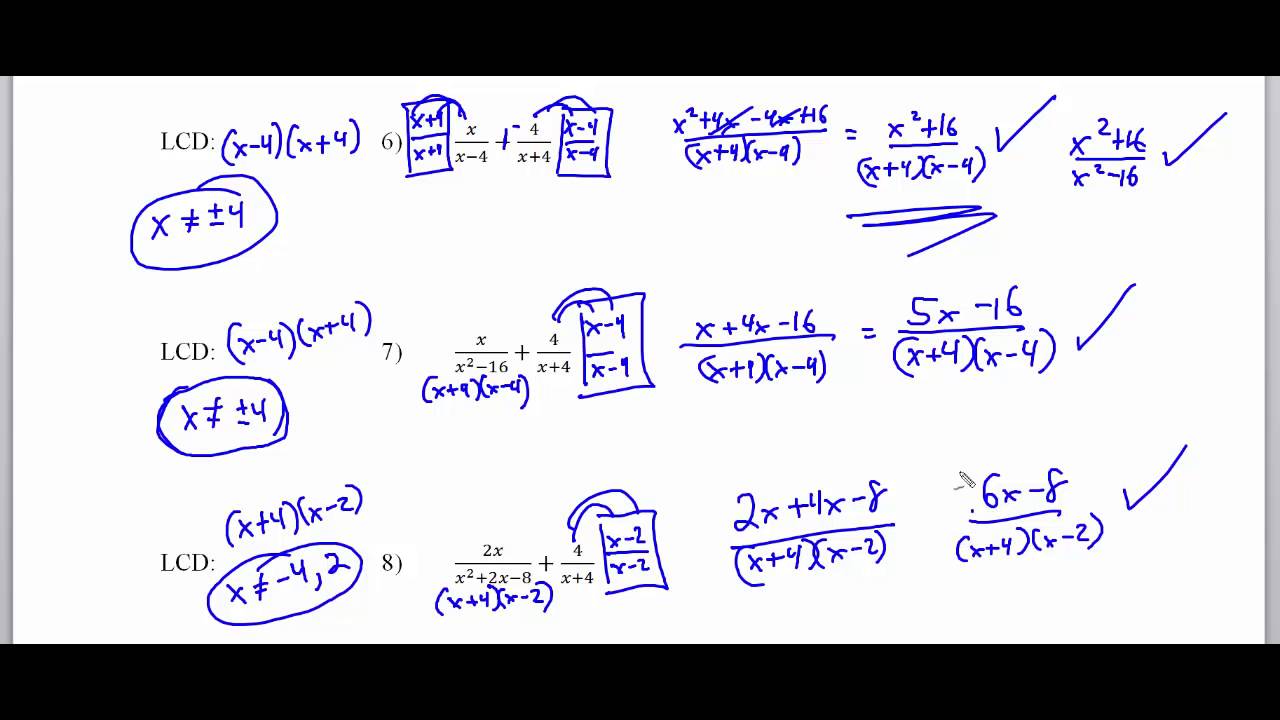 LCD: (x-4)(x+4) 6) x+4/x+4 x/(x-4) +- 4/(x+4) x-4/x-4 (x²+4x-4x+16)/((x+4)(x-4)) = (x²+16)/((x+4)(x-4)) ✓ (x²+16)/(x²-16) ✓
x ≠ ±4
LCD: (x-4)(x+4) 7) x/(x²-16) + 4/(x+4) x-4/x-4 (x+4x-16)/((x+4)(x-4)) = (5x-16)/((x+4)(x-4)) ✓
(x+4)(x-4)
x ≠ ±4
(x+4)(x-2)
LCD: 8) 2x/(x²+2x-8) + 4/(x+4) x-2/x-2 (2x+4x-8)/((x+4)(x-2)) (6x-8)/((x+4)(x-2)) ✓
x ≠ -4, 2
(x+4)(x-2)